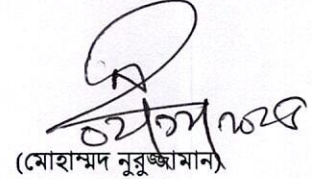 (মোহাম্মদ নুরুজ্জামান)